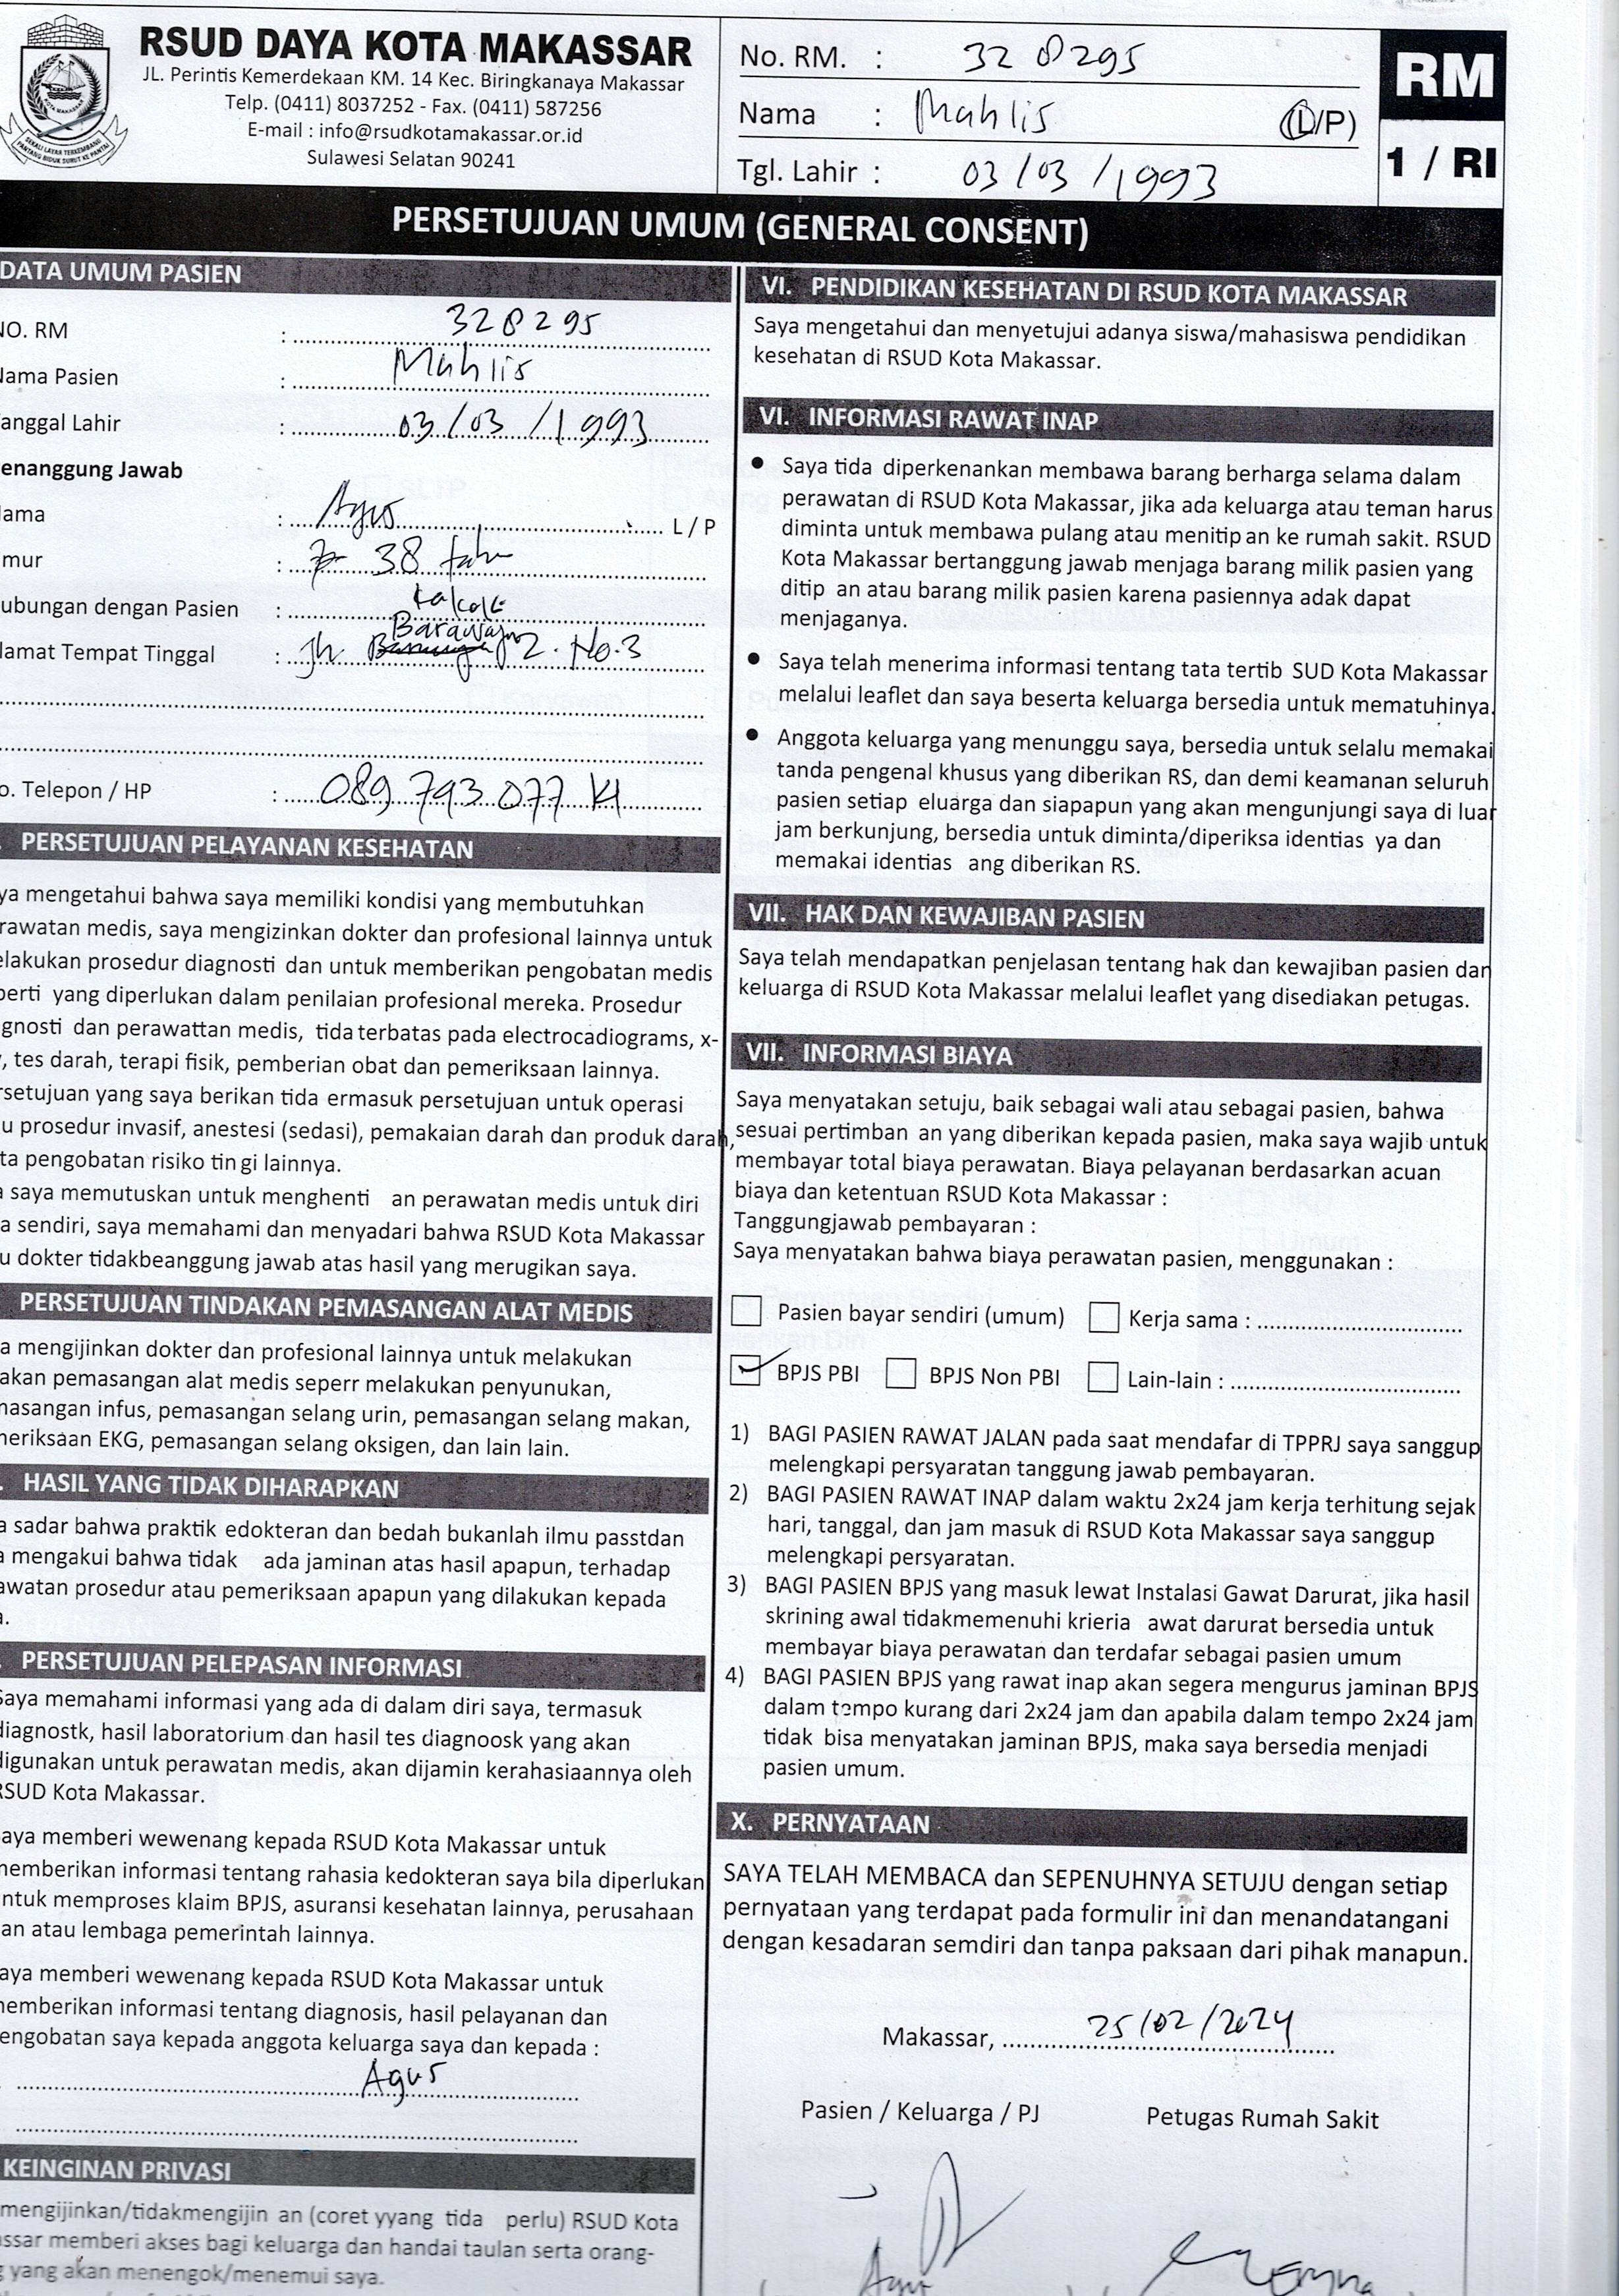 RSUD DAYA KOTA MAKASSAR
JL. Perintis Kemerdekaan KM. 14 Kec. Biringkanaya Makassar
Telp. (0411) 8037252 - Fax. (0411) 587256
E-mail : info@rsudkotamakassar.or.id
Sulawesi Selatan 90241
No. RM. : 328295
Nama : Mahlis (L/P)
Tgl. Lahir : 03/03/1993
RM
1 / RI
PERSETUJUAN UMUM (GENERAL CONSENT)
DATA UMUM PASIEN
NO. RM : 328295
Nama Pasien : Mahlis
anggal Lahir : 03/03/1993
enanggung Jawab
ama : Agus L / P
mur : 38 tahun
ubungan dengan Pasien : kakak
lamat Tempat Tinggal : Jln Barawaja 2. No.3
o. Telepon / HP : 089 793 077
PERSETUJUAN PELAYANAN KESEHATAN
ya mengetahui bahwa saya memiliki kondisi yang membutuhkan
rawatan medis, saya mengizinkan dokter dan profesional lainnya untuk
elakukan prosedur diagnosti dan untuk memberikan pengobatan medis
perti yang diperlukan dalam penilaian profesional mereka. Prosedur
gnosti dan perawattan medis, tida terbatas pada electrocadiograms, x-
, tes darah, terapi fisik, pemberian obat dan pemeriksaan lainnya.
rsetujuan yang saya berikan tida ermasuk persetujuan untuk operasi
u prosedur invasif, anestesi (sedasi), pemakaian darah dan produk darah,
ta pengobatan risiko tin gi lainnya.
a saya memutuskan untuk menghenti an perawatan medis untuk diri
a sendiri, saya memahami dan menyadari bahwa RSUD Kota Makassar
u dokter tidakbeanggung jawab atas hasil yang merugikan saya.
PERSETUJUAN TINDAKAN PEMASANGAN ALAT MEDIS
a mengijinkan dokter dan profesional lainnya untuk melakukan
akan pemasangan alat medis seperr melakukan penyunukan,
masangan infus, pemasangan selang urin, pemasangan selang makan,
meriksaan EKG, pemasangan selang oksigen, dan lain lain.
HASIL YANG TIDAK DIHARAPKAN
a sadar bahwa praktik edokteran dan bedah bukanlah ilmu passtdan
a mengakui bahwa tidak ada jaminan atas hasil apapun, terhadap
awatan prosedur atau pemeriksaan apapun yang dilakukan kepada
a.
PERSETUJUAN PELEPASAN INFORMASI
Saya memahami informasi yang ada di dalam diri saya, termasuk
diagnostk, hasil laboratorium dan hasil tes diagnoosk yang akan
digunakan untuk perawatan medis, akan dijamin kerahasiaannya oleh
RSUD Kota Makassar.
aya memberi wewenang kepada RSUD Kota Makassar untuk
memberikan informasi tentang rahasia kedokteran saya bila diperlukan
ntuk memproses klaim BPJS, asuransi kesehatan lainnya, perusahaan
an atau lembaga pemerintah lainnya.
aya memberi wewenang kepada RSUD Kota Makassar untuk
memberikan informasi tentang diagnosis, hasil pelayanan dan
engobatan saya kepada anggota keluarga saya dan kepada :
Agus
KEINGINAN PRIVASI
mengijinkan/tidakmengijin an (coret yyang tida perlu) RSUD Kota
assar memberi akses bagi keluarga dan handai taulan serta orang-
g yang akan menengok/menemui saya.
VI. PENDIDIKAN KESEHATAN DI RSUD KOTA MAKASSAR
Saya mengetahui dan menyetujui adanya siswa/mahasiswa pendidikan
kesehatan di RSUD Kota Makassar.
VI. INFORMASI RAWAT INAP
• Saya tida diperkenankan membawa barang berharga selama dalam
perawatan di RSUD Kota Makassar, jika ada keluarga atau teman harus
diminta untuk membawa pulang atau menitip an ke rumah sakit. RSUD
Kota Makassar bertanggung jawab menjaga barang milik pasien yang
ditip an atau barang milik pasien karena pasiennya adak dapat
menjaganya.
• Saya telah menerima informasi tentang tata tertib SUD Kota Makassar
melalui leaflet dan saya beserta keluarga bersedia untuk mematuhinya.
• Anggota keluarga yang menunggu saya, bersedia untuk selalu memakai
tanda pengenal khusus yang diberikan RS, dan demi keamanan seluruh
pasien setiap eluarga dan siapapun yang akan mengunjungi saya di luar
jam berkunjung, bersedia untuk diminta/diperiksa identias ya dan
memakai identias ang diberikan RS.
VII. HAK DAN KEWAJIBAN PASIEN
Saya telah mendapatkan penjelasan tentang hak dan kewajiban pasien dan
keluarga di RSUD Kota Makassar melalui leaflet yang disediakan petugas.
VII. INFORMASI BIAYA
Saya menyatakan setuju, baik sebagai wali atau sebagai pasien, bahwa
sesuai pertimban an yang diberikan kepada pasien, maka saya wajib untuk
membayar total biaya perawatan. Biaya pelayanan berdasarkan acuan
biaya dan ketentuan RSUD Kota Makassar :
Tanggungjawab pembayaran :
Saya menyatakan bahwa biaya perawatan pasien, menggunakan :
Pasien bayar sendiri (umum) Kerja sama :
BPJS PBI BPJS Non PBI Lain-lain :
1) BAGI PASIEN RAWAT JALAN pada saat mendafar di TPPRJ saya sanggup
melengkapi persyaratan tanggung jawab pembayaran.
2) BAGI PASIEN RAWAT INAP dalam waktu 2x24 jam kerja terhitung sejak
hari, tanggal, dan jam masuk di RSUD Kota Makassar saya sanggup
melengkapi persyaratan.
3) BAGI PASIEN BPJS yang masuk lewat Instalasi Gawat Darurat, jika hasil
skrining awal tidakmemenuhi krieria awat darurat bersedia untuk
membayar biaya perawatan dan terdafar sebagai pasien umum
4) BAGI PASIEN BPJS yang rawat inap akan segera mengurus jaminan BPJS
dalam tempo kurang dari 2x24 jam dan apabila dalam tempo 2x24 jam
tidak bisa menyatakan jaminan BPJS, maka saya bersedia menjadi
pasien umum.
X. PERNYATAAN
SAYA TELAH MEMBACA dan SEPENUHNYA SETUJU dengan setiap
pernyataan yang terdapat pada formulir ini dan menandatangani
dengan kesadaran semdiri dan tanpa paksaan dari pihak manapun.
Makassar, 25/02/2024
Pasien / Keluarga / PJ Petugas Rumah Sakit
Agus